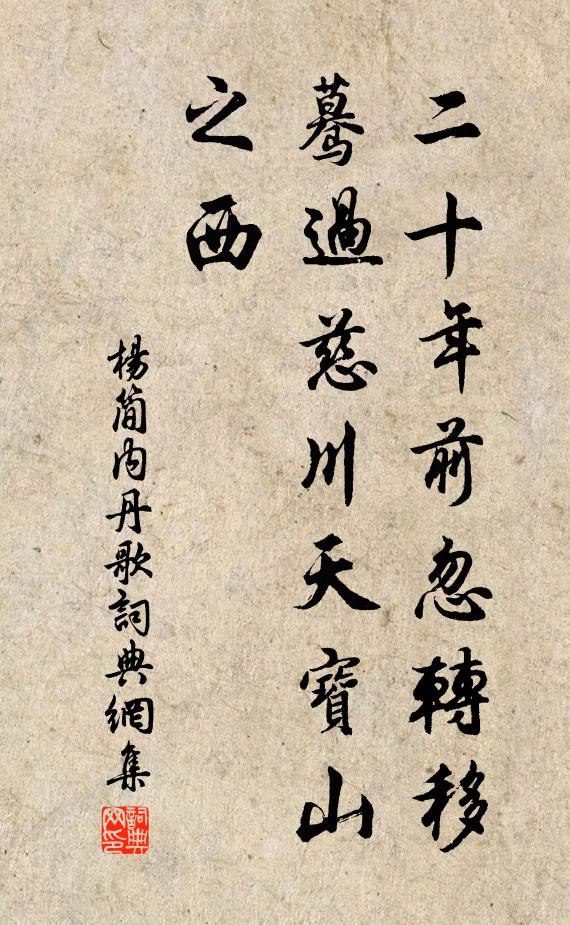 二十年前忽轉移
驀過慈川天寶山
之西
楊簡內丹歌詞典網集
詞典网印